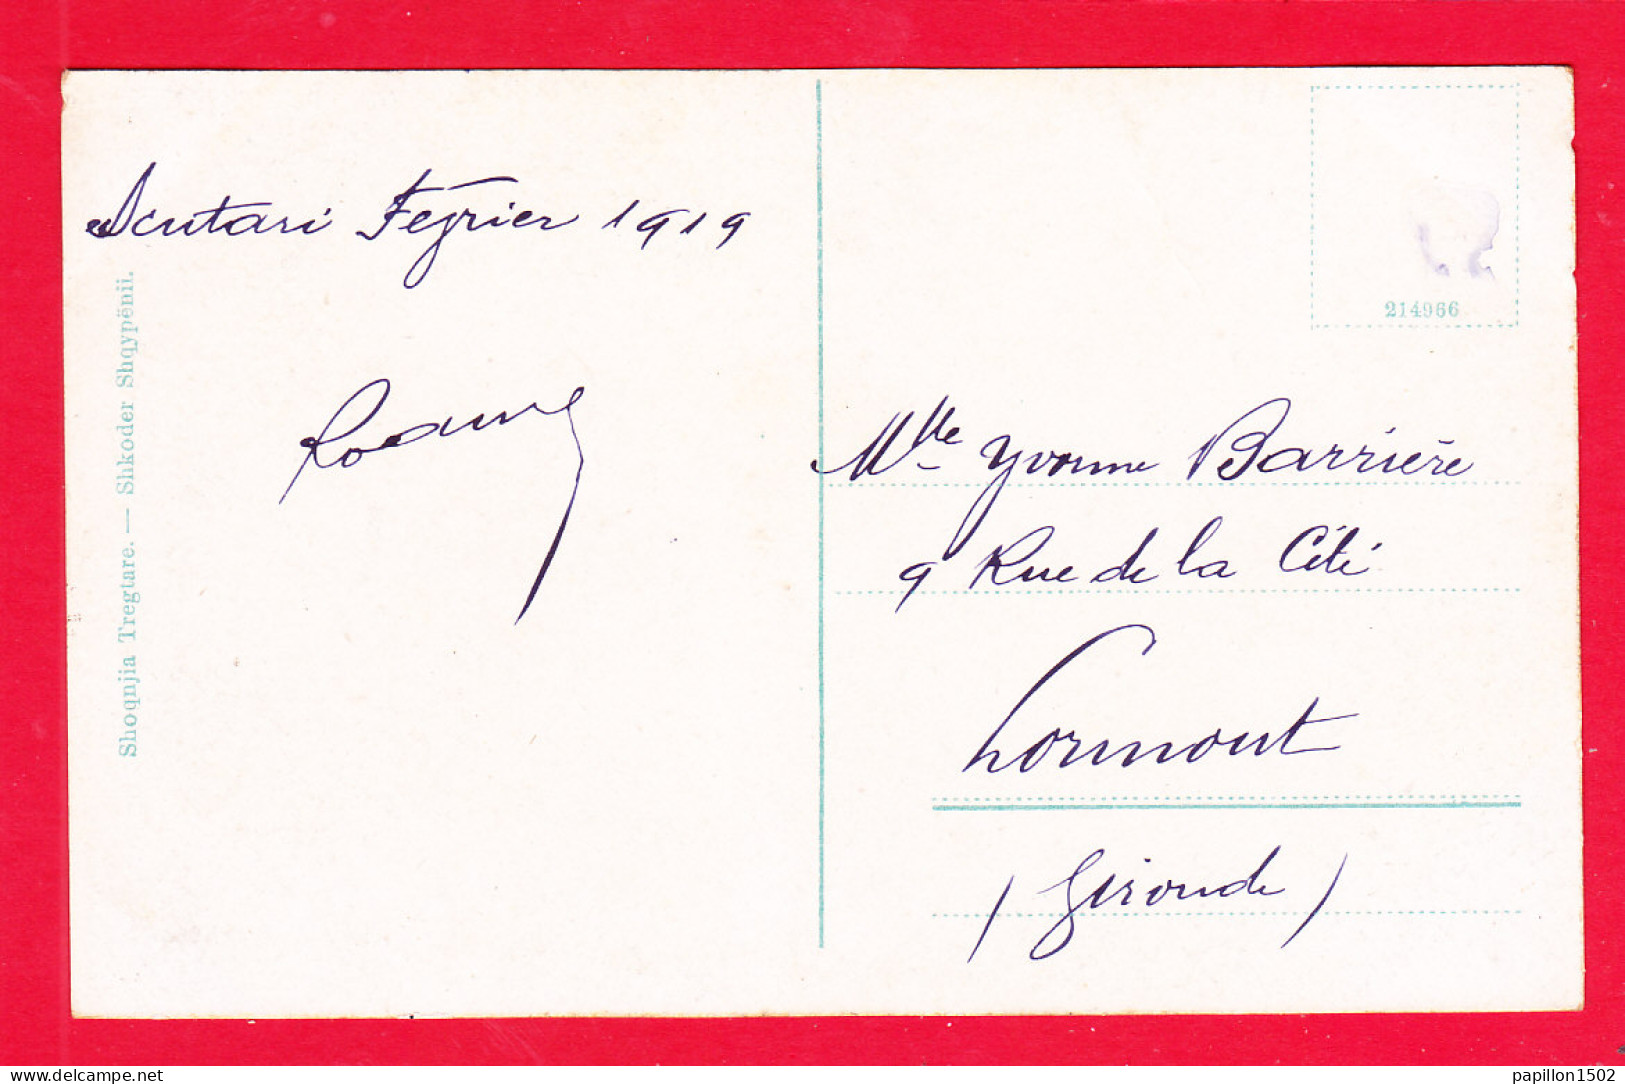 Scutari Février 1919
Shoqnjia Tregtare. — Shkoder Shqypënii.
214966
Mlle Yvonne Barrière
9 Rue de la Cité
Lormont
(Gironde)
www.delcampe.net
papillon1502